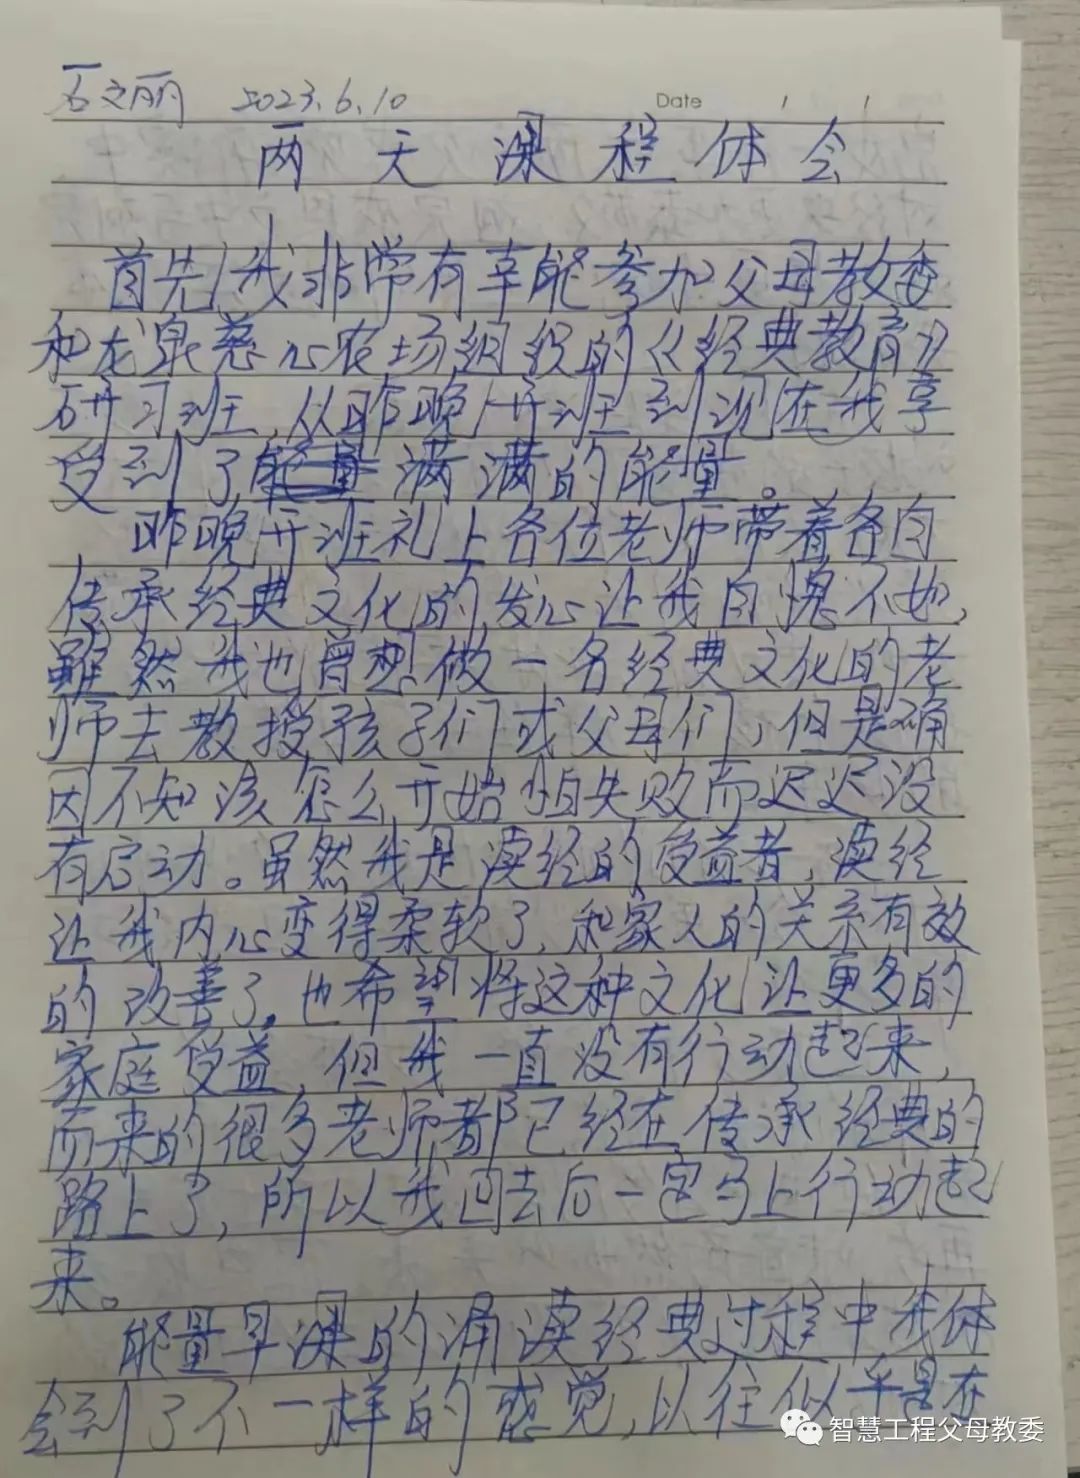 石文丽 2023.6.10 Date / /
两天课程体会
首先,我非常有幸能参加父母教委
和龙泉慈心农场组织的《经典教育》
研习班,从昨晚开班到现在我享
受到了能量满满的能量。
昨晚开班礼上各位老师带着各自
传承经典文化的发心让我自愧不如,
虽然我也曾想做一名经典文化的老
师去教授孩子们或父母们,但是确
因不知该怎么开始怕失败而迟迟没
有启动。虽然我是读经的受益者,读经
让我内心变得柔软了,和家人的关系有效
的改善了。也希望将这种文化让更多的
家庭受益,但我一直没有行动起来,
而来的很多老师都已经在传承经典的
路上了,所以我回去后一定马上行动起
来。
能量早课的诵读经典过程中我体
会到了不一样的感觉,以往似乎是在
智慧工程父母教委